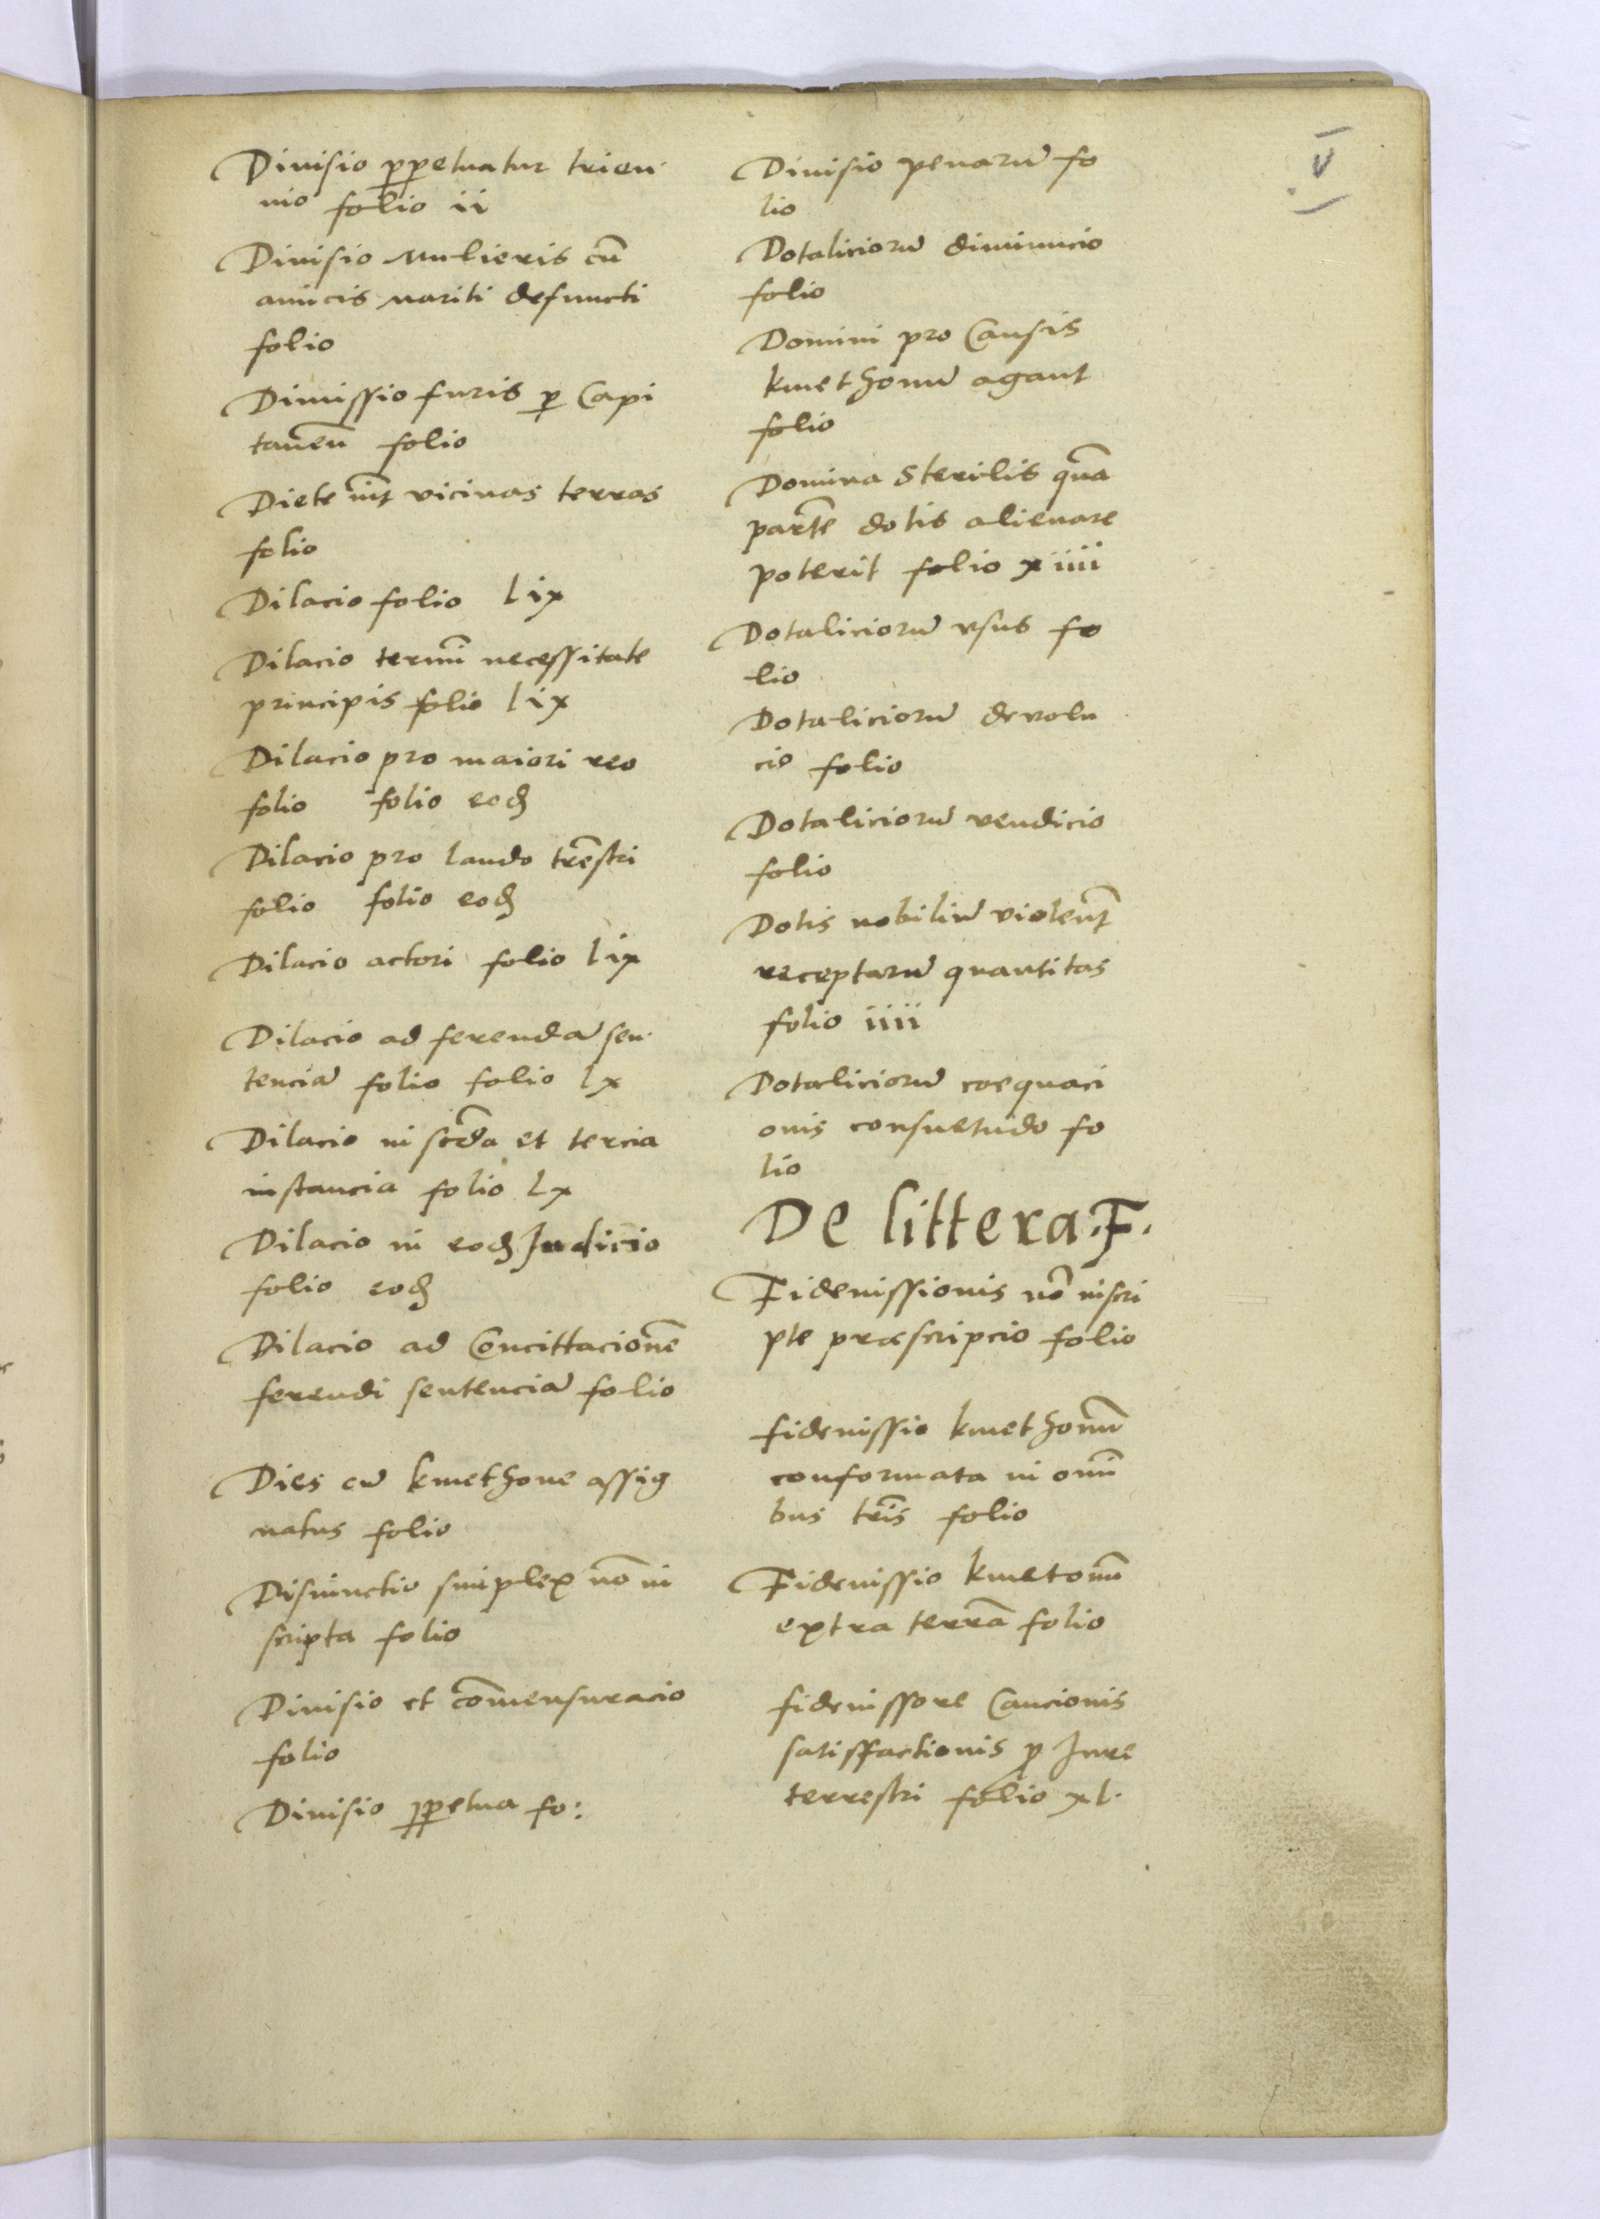 V
Diuisio ꝑpetuatur trien-
nio folio ii
Diuisio mulieris cū
amicis mariti defuncti
folio
Dimissio furis ꝑ Capi
taneū folio
Diete int̄ vicinas terras
folio
Dilacio folio lix
Dilacio termī necessitate
principis folio lix
Dilacio pro maiori reo
folio folio eodꝫ
Dilacio pro laudo tr̄estri
folio folio eodꝫ
Dilacio actori folio lix
Dilacio ad ferendā sen-
tenciā folio folio lx
Dilacio in scd̄a et tercia
instancia folio lx
Dilacio in eodꝫ Judicio
folio eodꝫ
Dilacio ad Concittacionē
ferendi sentenciā folio
Dies cū kmethone assig
natus folio
Disiunctio simplex nō in
scripta folio
Diuisio et cōmensuracio
folio
Diuisio ꝑpetua fo:
Diuisio penarū fo
lio
Dotaliciorū diminucio
folio
Domini pro Causis
kmethonū agant
folio
Domina sterilis quā
partē dotis alienare
poterit folio xiiii
Dotaliciorū vsus fo
lio
Dotaliciorū deuolu
cio folio
Dotaliciorū vendicio
folio
Dotis nobiliū violent̄
receptarū quantitas
folio iiii
Dotaliciorū coequaci
onis consuetudo fo
lio
De littera .F.
Fideiussionis nō inscri
pte præscripcio folio
fideiussio kmethonū
conformata in omī
bus tr̄is folio
Fideiussio kmetonū
extra terrā folio
fideiussore Caucionis
satisfactionis ꝓ Jure
terrestri folio xl.